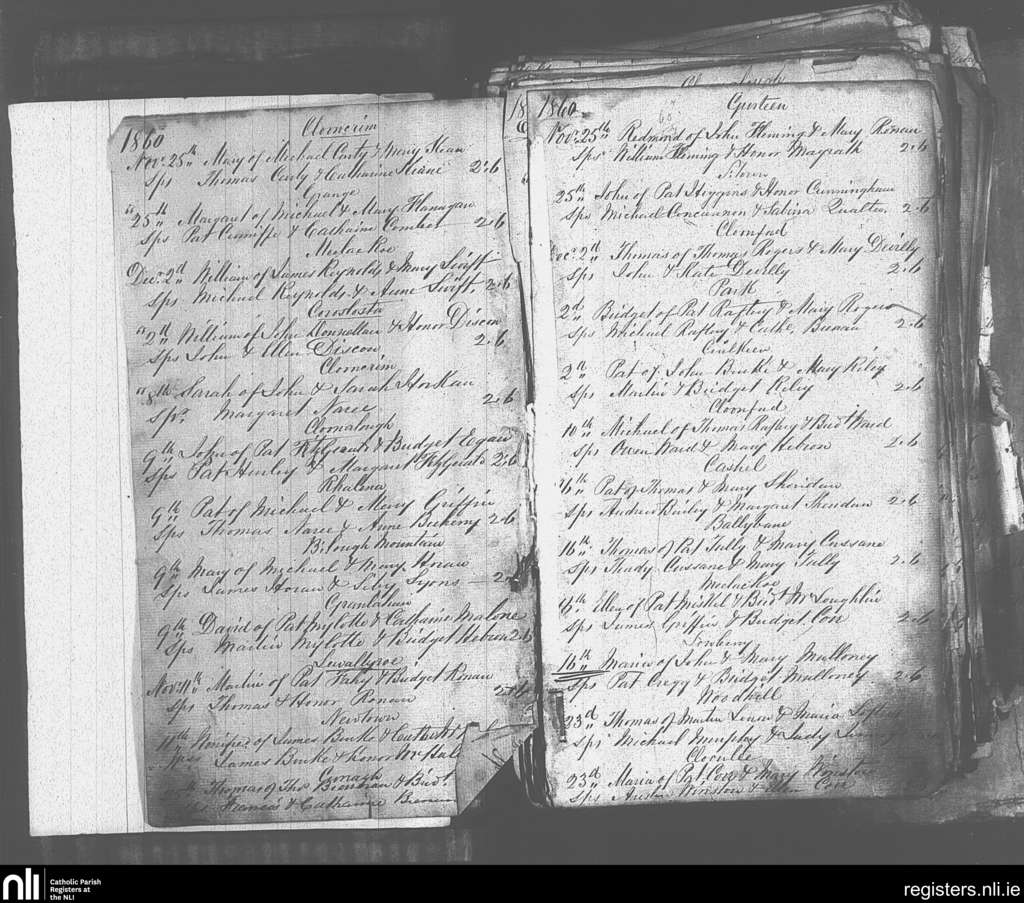 1860
Clomerim
Nov: 25th Mary of Michael Carty & Mary Kean
Sps Thomas Carty & Catharine Keane 2:6
Grange
" 25th Margaret of Michael & Mary Flanagan
Sps Pat Cunniffe & Catharine 2:6
Meelackroe
Dec: 2d William of James Reynolds & Mary Swift
Sps Michael Reynolds & Anne Swift 2:6
" 2d William of John Donnellan & Honor Discon
Sps John & Ellen Discon 2:6
Clomerim
" 8th Sarah of John & Sarah Horkan
Spr. Margaret Naree 2:6
Cloonalough
9th John of Pat Fitzgerald & Bridget Egan
Sps Pat Hurley & Margaret Fitzgerald 2:6
Rhalena
9th Pat of Michael & Mary Griffin
Sps Thomas Naree & Anne 2:6
Bilough Mountain
9th Mary of Michael & Mary Horan
Sps James Horan & Lyons
9th David of Pat Mylotte & Catharine Malone
Sps Martin Mylotte & Bridget Hebron 2:6
Lavallyroe
Nov: 11th Martin of Pat Fahy & Bridget Ronan
Sps Thomas & Honor Ronan 2:6
Newtown
11th of James Burke &
Sps James Burke & Honor
Thomas of & Bidt
Francis & Catharine
1860
Gurteen
Nov: 25th Redmond of John Fleming & Mary Ronan
Sps William Fleming & Honor Magrath 2:6
25th John of Pat Higgins & Honor Cunningham
Sps Michael Concannon & Sabina Qualter 2:6
Clonfad
Dec: 2d Thomas of Thomas Rogers & Mary Devilly
Sps John & Kate Devilly 2:6
Park
2d Bridget of Pat Raftery & Mary Rogers
Sps Michael Raftery & Cathe. 2:6
2d Pat of John Burke & Mary Riley
Sps Martin & Bridget Riley 2:6
Cloonfad
10th Michael of Thomas Raftery & Bidt Ward
Sps Owen Ward & Mary Hebron 2:6
Cashel
16th Pat of Thomas & Mary Sheridan
Sps Andrew & Margaret Sheridan 2:6
Ballybane
16th Thomas of Pat Tully & Mary Cussane
Sps Thady Cussane & Mary Tully 2:6
Meelackroe
16th Ellen of Pat Miskel & Bidt McLoughlin
Sps James Griffin & Bridget Coxe 2:6
16th Maria of John & Mary Mulloney
Sps Pat Cregg & Bridget Mulloney 2:6
Woodhill
23d Thomas of Martin & Maria
Sps Michael Murphy & Judy
23d Maria of Pat Coxe & Mary Winston
Sps Austin Winston & Ellen Coxe
nli
Catholic Parish
Registers at
the NLI
registers.nli.ie